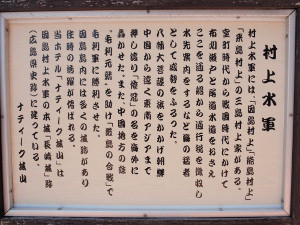 村上水軍
村上水軍には、「因島村上」「能島村上」
「来島村上」の三島村上家がある。
室町時代から戦国時代にかけて
布刈瀬戸と尾道水道をおさえ
ここを通る船から通行税を徴収し
水先案内をするなど海の諸者
として威勢をふるった。
八幡大菩薩の旗をかかげ朝鮮
中国から遠く東南アジアまで
押し渡り「倭冦」の名を海外に
轟かせた。また、中国地方の雄
毛利元就を助け「厳島の合戦」で
毛利軍に勝利させた。
因島島内には多くの城跡があり
往時の活躍が偲ばれる。
当ホテル「ナティーク城山」は
因島村上水軍の本城「長崎城」跡
(広島県史跡)に建っている。
ナティーク城山